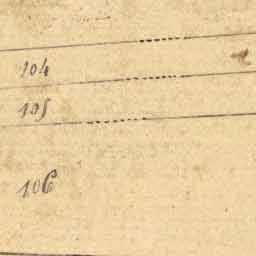 104
105
106